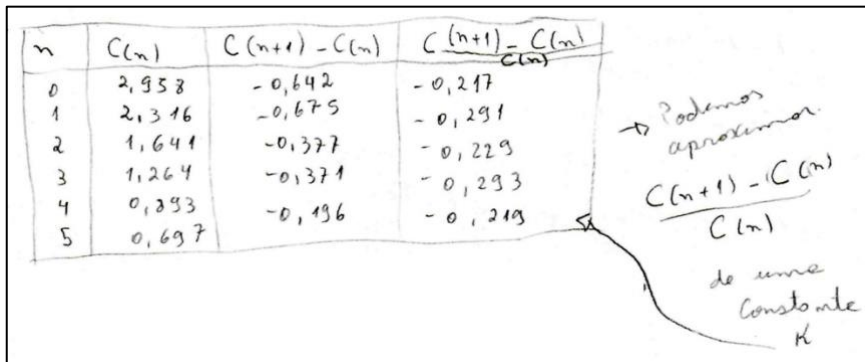 n C(n) C(n+1) - C(n) C(n+1) - C(n) / C(n)
0 2,958 -0,642 -0,217
1 2,316 -0,675 -0,291
2 1,641 -0,377 -0,229
3 1,264 -0,371 -0,293
4 0,893 -0,196 -0,219
5 0,697
→ Podemos
aproximar
C(n+1) - C(n)
C(n)
de uma
constante
K